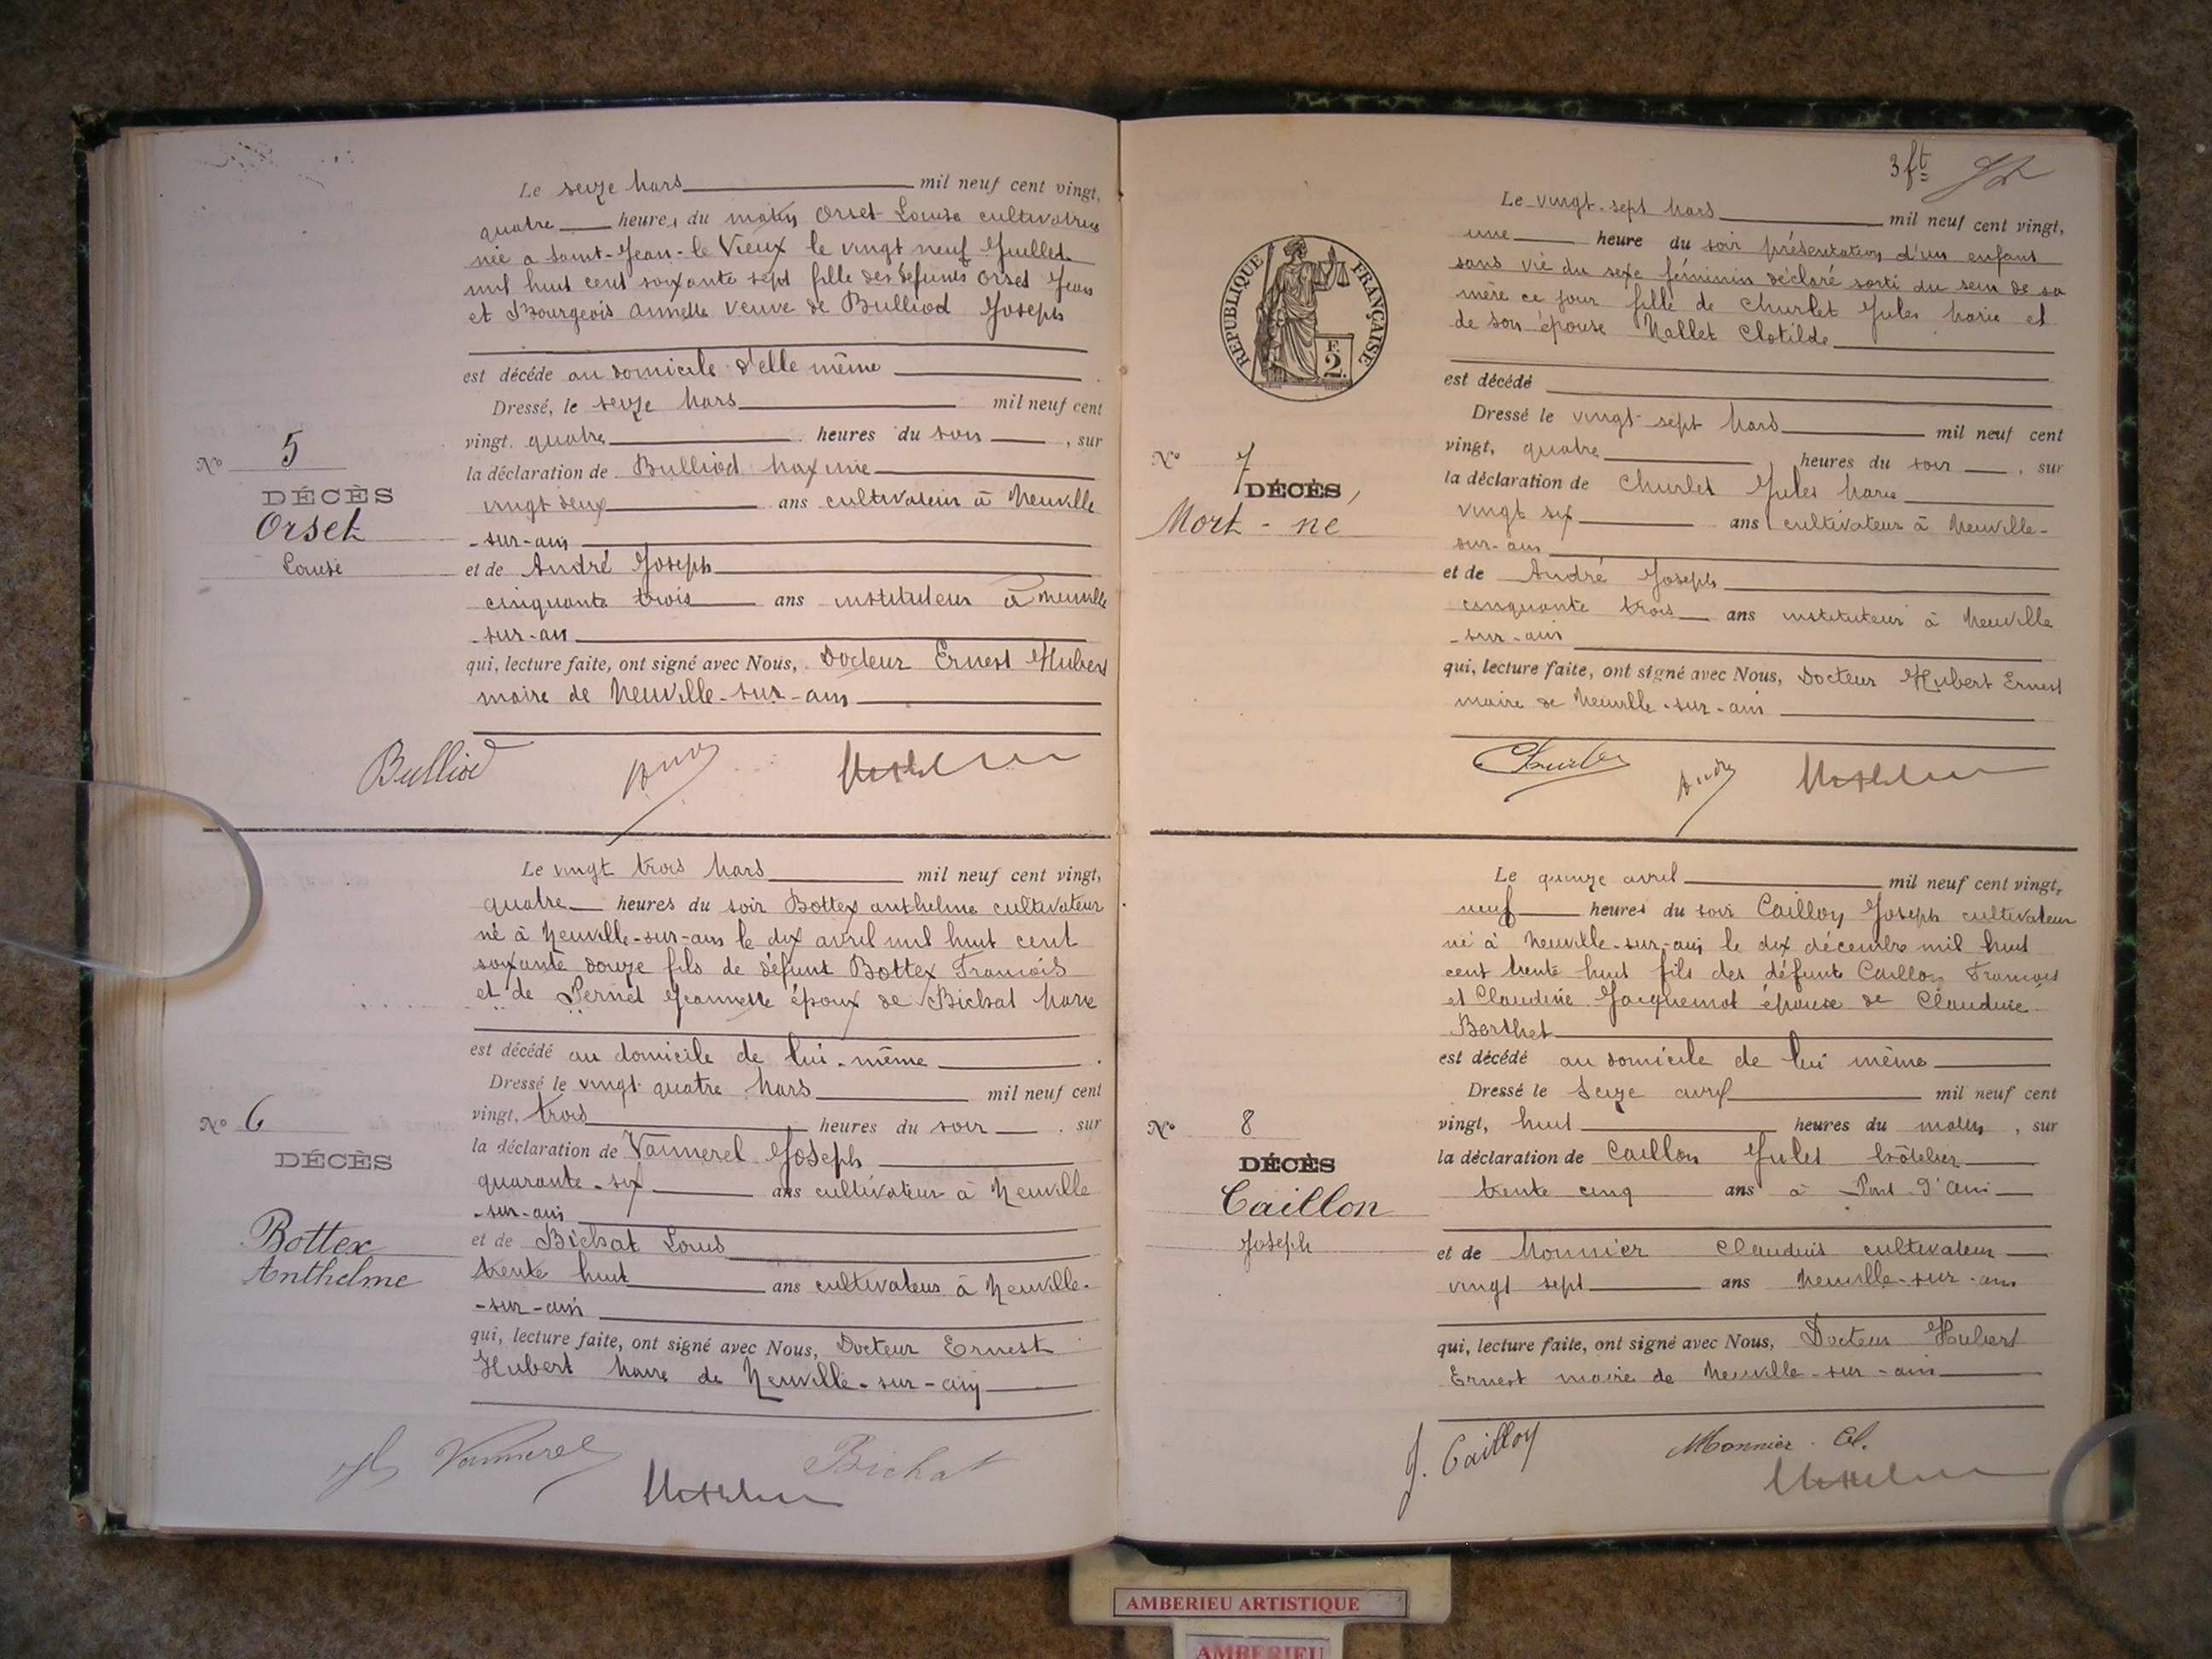 Le seize Mars mil neuf cent vingt,
quatre heures du matin Orset Louise cultivatrice
née à Saint-Jean-le Vieux le vingt neuf Juillet
mil huit cent soixante sept fille des défunts Orset Jean
et Bourgeois Annette veuve de Bulliod Joseph
est décédé au domicile d'elle même
Dressé, le seize Mars mil neuf cent
vingt, quatre heures du soir, sur
la déclaration de Bulliod Maxime
vingt deux ans cultivateur à Neuville
-sur-ain
et de André Joseph
cinquante trois ans instituteur à Neuville
-sur-ain
qui, lecture faite, ont signé avec Nous, Docteur Ernest Hubert
maire de Neuville-sur-ain
No 5
DÉCÈS
Orset
Louise
Bulliod
Le vingt trois Mars mil neuf cent vingt,
quatre heures du soir Bottex anthelme cultivateur
né à Neuville-sur-ain le dix avril mil huit cent
soixante douze fils de défunt Bottex François
et de Pernet Jeannette époux de Bichat Marie
est décédé au domicile de lui-même
Dressé le vingt quatre Mars mil neuf cent
vingt, trois heures du soir, sur
la déclaration de Vannerel Joseph
quarante-six ans cultivateur à Neuville
-sur-ain
et de Bichat Louis
trente huit ans cultivateur à Neuville-
-sur-ain
qui, lecture faite, ont signé avec Nous, Docteur Ernest
Hubert Maire de Neuville-sur-ain
No 6
DÉCÈS
Bottex
Anthelme
Vannerel
Bichat
3 ft
Le vingt-sept Mars mil neuf cent vingt,
une heure du soir présentation d'un enfant
sans vie du sexe féminin déclaré sorti du sein de sa
mère ce jour fille de Churlet Jules Marie et
de son épouse Nallet Clotilde
est décédé
Dressé le vingt-sept Mars mil neuf cent
vingt, quatre heures du soir, sur
la déclaration de Churlet Jules Marie
vingt six ans cultivateur à Neuville-
sur-ain
et de André Joseph
cinquante trois ans instituteur à Neuville
-sur-ain
qui, lecture faite, ont signé avec Nous, Docteur Hubert Ernest
maire de Neuville-sur-ain
RÉPUBLIQUE FRANÇAISE
F.
2.
No 7
DÉCÈS
Mort-né
Churlet
André
Le quinze avril mil neuf cent vingt,
neuf heures du soir Caillon Joseph cultivateur
né à Neuville-sur-ain le dix décembre mil huit
cent trente huit fils des défunts Caillon François
et Claudine Jacquemot épouse de Claudine
Berthet
est décédé au domicile de lui même
Dressé le seize avril mil neuf cent
vingt, huit heures du matin, sur
la déclaration de Caillon Jules hôtelier
trente cinq ans à Pont d'Ain
et de Monnier Claudius cultivateur
vingt sept ans Neuville-sur-ain
qui, lecture faite, ont signé avec Nous, Docteur Hubert
Ernest maire de Neuville-sur-ain
No 8
DÉCÈS
Caillon
Joseph
J. Caillon
Monnier Cl.
AMBERIEU ARTISTIQUE
AMBERIEU